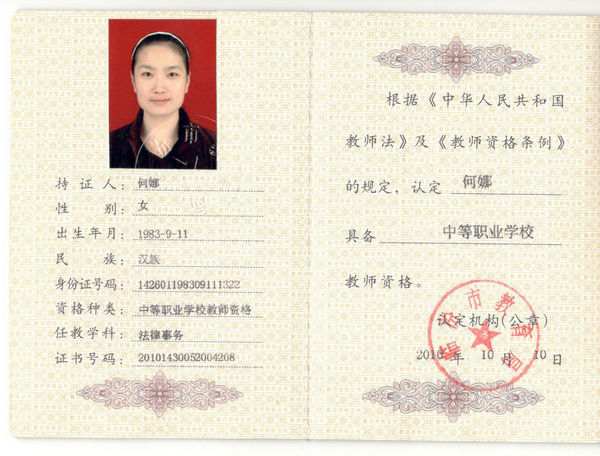 持证人：何娜
性别：女
出生年月：1983-9-11
民族：汉族
身份证号码：142601198309111322
资格种类：中等职业学校教师资格
任教学科：法律事务
证书号码：20101430052004208
根据《中华人民共和国
教师法》及《教师资格条例》
的规定，认定 何娜
具备 中等职业学校
教师资格。
市教育局
认定机构(公章)
2010年 10月 10日